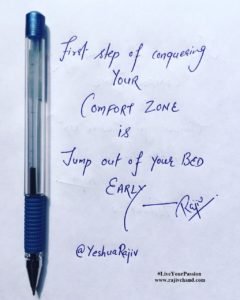 First step of conquering
YOUR
COMFORT ZONE
is
Jump out of your BED
EARLY
—Rajiv
@YeshuaRajiv
#LiveYourPassion
www.rajivchand.com